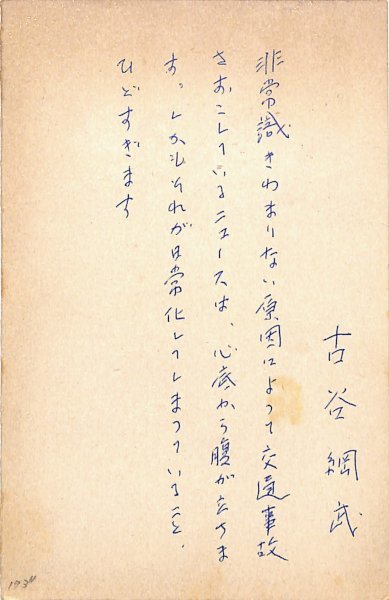 古谷綱武
非常識きわまりない原因によって交通事故
をおこしているニュースは、心底から腹が立ちま
す。しかもそれが日常化してしまっていること、
ひどすぎます